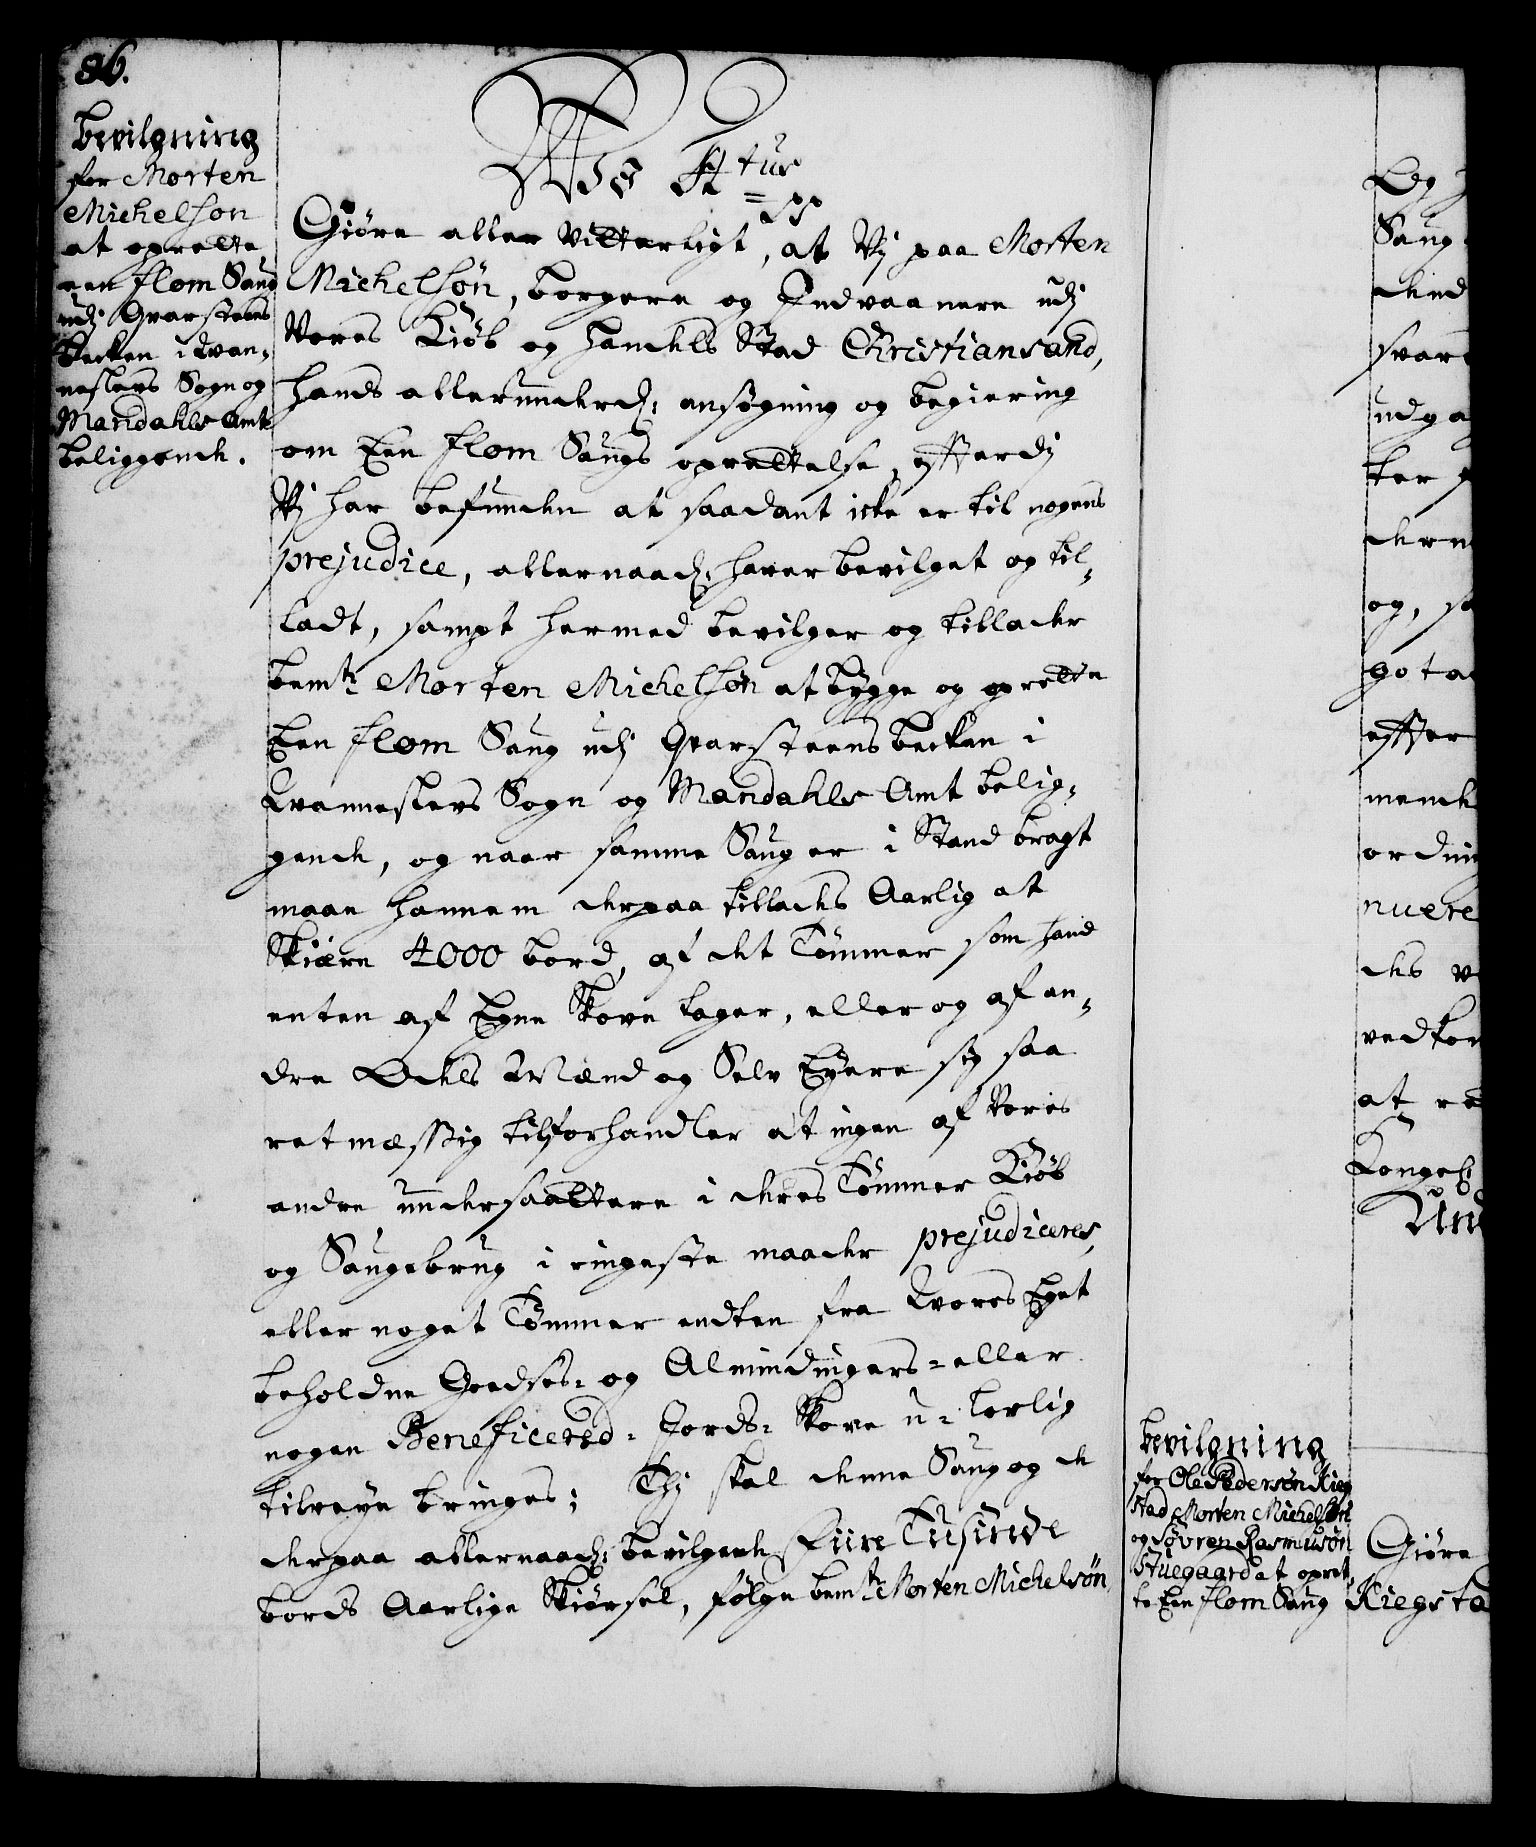 86.
Bevilgning
for Morten
Michelsøn
at oprette
een flom Saug
udj Qvarsteens
becken i Qvan¬
neslevs Sogn og
Mandahls Amt
beliggende.
Wii F 4tus
Giøre aller Vitterligt, at Vj paa Morten
Michelsøn, borgere og Indvaanere udj
Vores Kiøb og handels Stad Christiansand,
hands allerunderd: ansøgning og begiering
om Een flom Saugs oprettelse, efterdj
Vj har befunden at saadant icke er til nogens
prejudice, allernaad: haver bevilget og til¬
ladt, sampt hermed bevilger og tillader
bemte Morten Michelsøn at bygge og oprette
Een flom Saug udj Qvarsteens becken i
Qvanneslevs Sogn og Mandahls Amt belig¬
gende, og naar samme Saug er i Stand bragt
maae hannem derpaa tillades Aarlig at
Skiære 4000 bord, af det Tømmer som hand
enten af Egne Skove tager, eller og af an¬
dre Odels Mænd og Selv Eyere sig saa
retmæssig tilforhandler at ingen af Vores
andre undersaattere i deres Tømmer Kiøb
og Saugebrug i ringeste maader prejudiceres,
eller noget Tømmer endten fra Vores Eget
beholdne Goedses- og Almindingers- eller
nogen Beneficered- Jords- Skove u-lovlig
tilveye bringes; Thj skal denne Saug og de
derpaa allernaad: bevilgede Fiire Tusinde
bords Aarlige Skiørsel, følge bemte Morten Michelsøn
Bevilgning
for Ole Pedersøn Kieg
stad Morten Michelsøn
og Søvren Rasmusøn
Stuegaard at opret¬
te Een flom Saug
Og
Saug
dend
svar
udg
ter
dern
og, s
gota
effter
mend
ordni
nuere
des v
vedko
at re
Kongel
Und
Giøre
Kiegsta